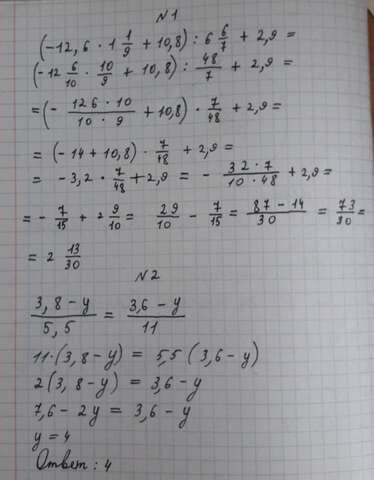 №1
(-12,6 · 1 1/9 + 10,8) : 6 6/7 + 2,9 =
(-12 6/10 · 10/9 + 10,8) : 48/7 + 2,9 =
= (- 126 · 10 / 10 · 9 + 10,8) · 7/48 + 2,9 =
= (-14 + 10,8) · 7/48 + 2,9 =
= -3,2 · 7/48 + 2,9 = - 32 · 7 / 10 · 48 + 2,9 =
= - 7/15 + 2 9/10 = 29/10 - 7/15 = 87 - 14 / 30 = 73/30 =
= 2 13/30
№2
3,8 - y / 5,5 = 3,6 - y / 11
11 · (3,8 - y) = 5,5 (3,6 - y)
2 (3,8 - y) = 3,6 - y
7,6 - 2y = 3,6 - y
y = 4
Ответ: 4